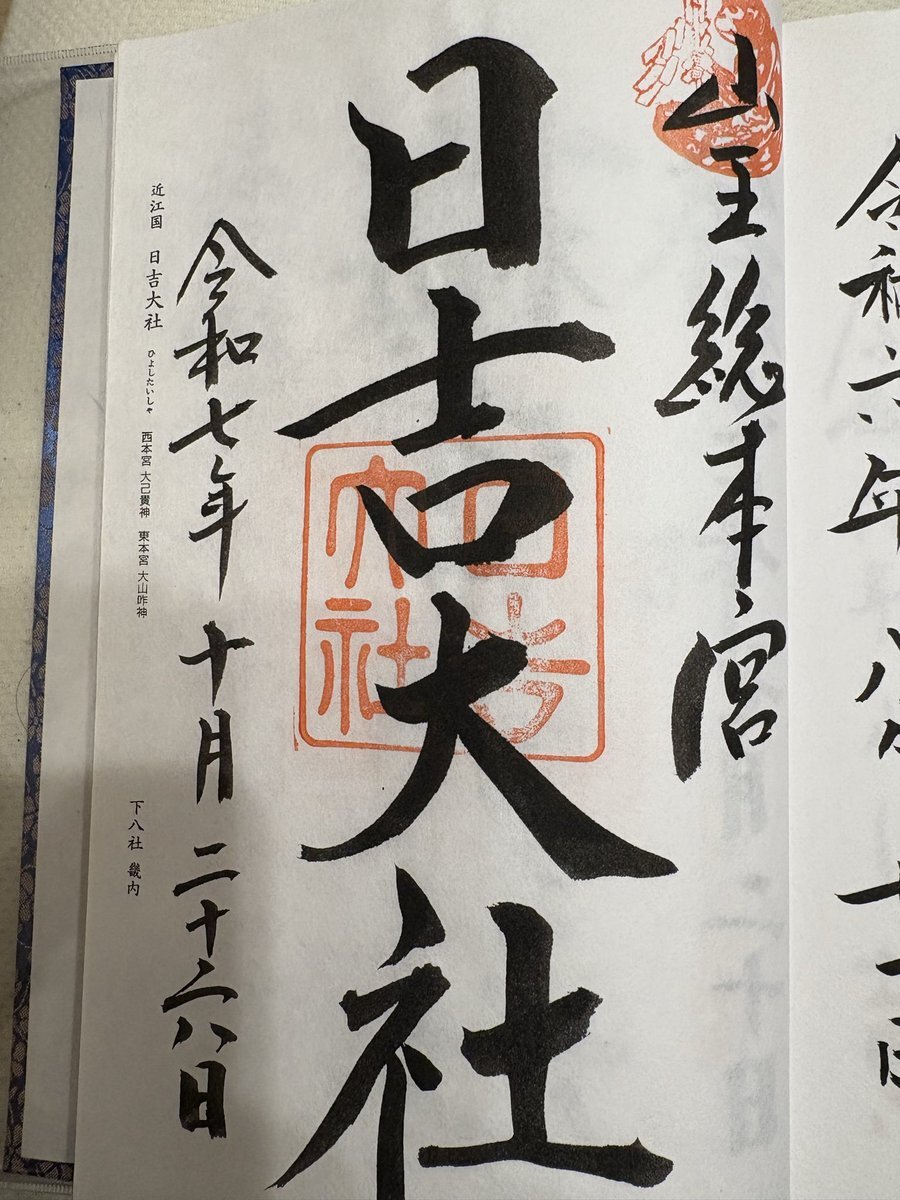 令和六年 八月 十一日
山王総本宮
日吉大社
日吉大社
令和七年 十月 二十六日
近江国 日吉大社 ひよしたいしゃ 西本宮 大己貴神 東本宮 大山咋神
下八社 畿内